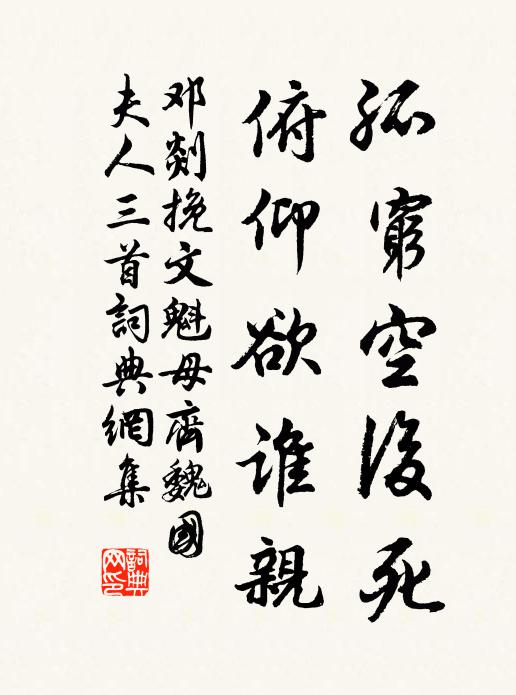 孤窮空後死
俯仰欲谁親
邓剡挽文魁母齊魏國
夫人三首詞典網集
詞典
网印